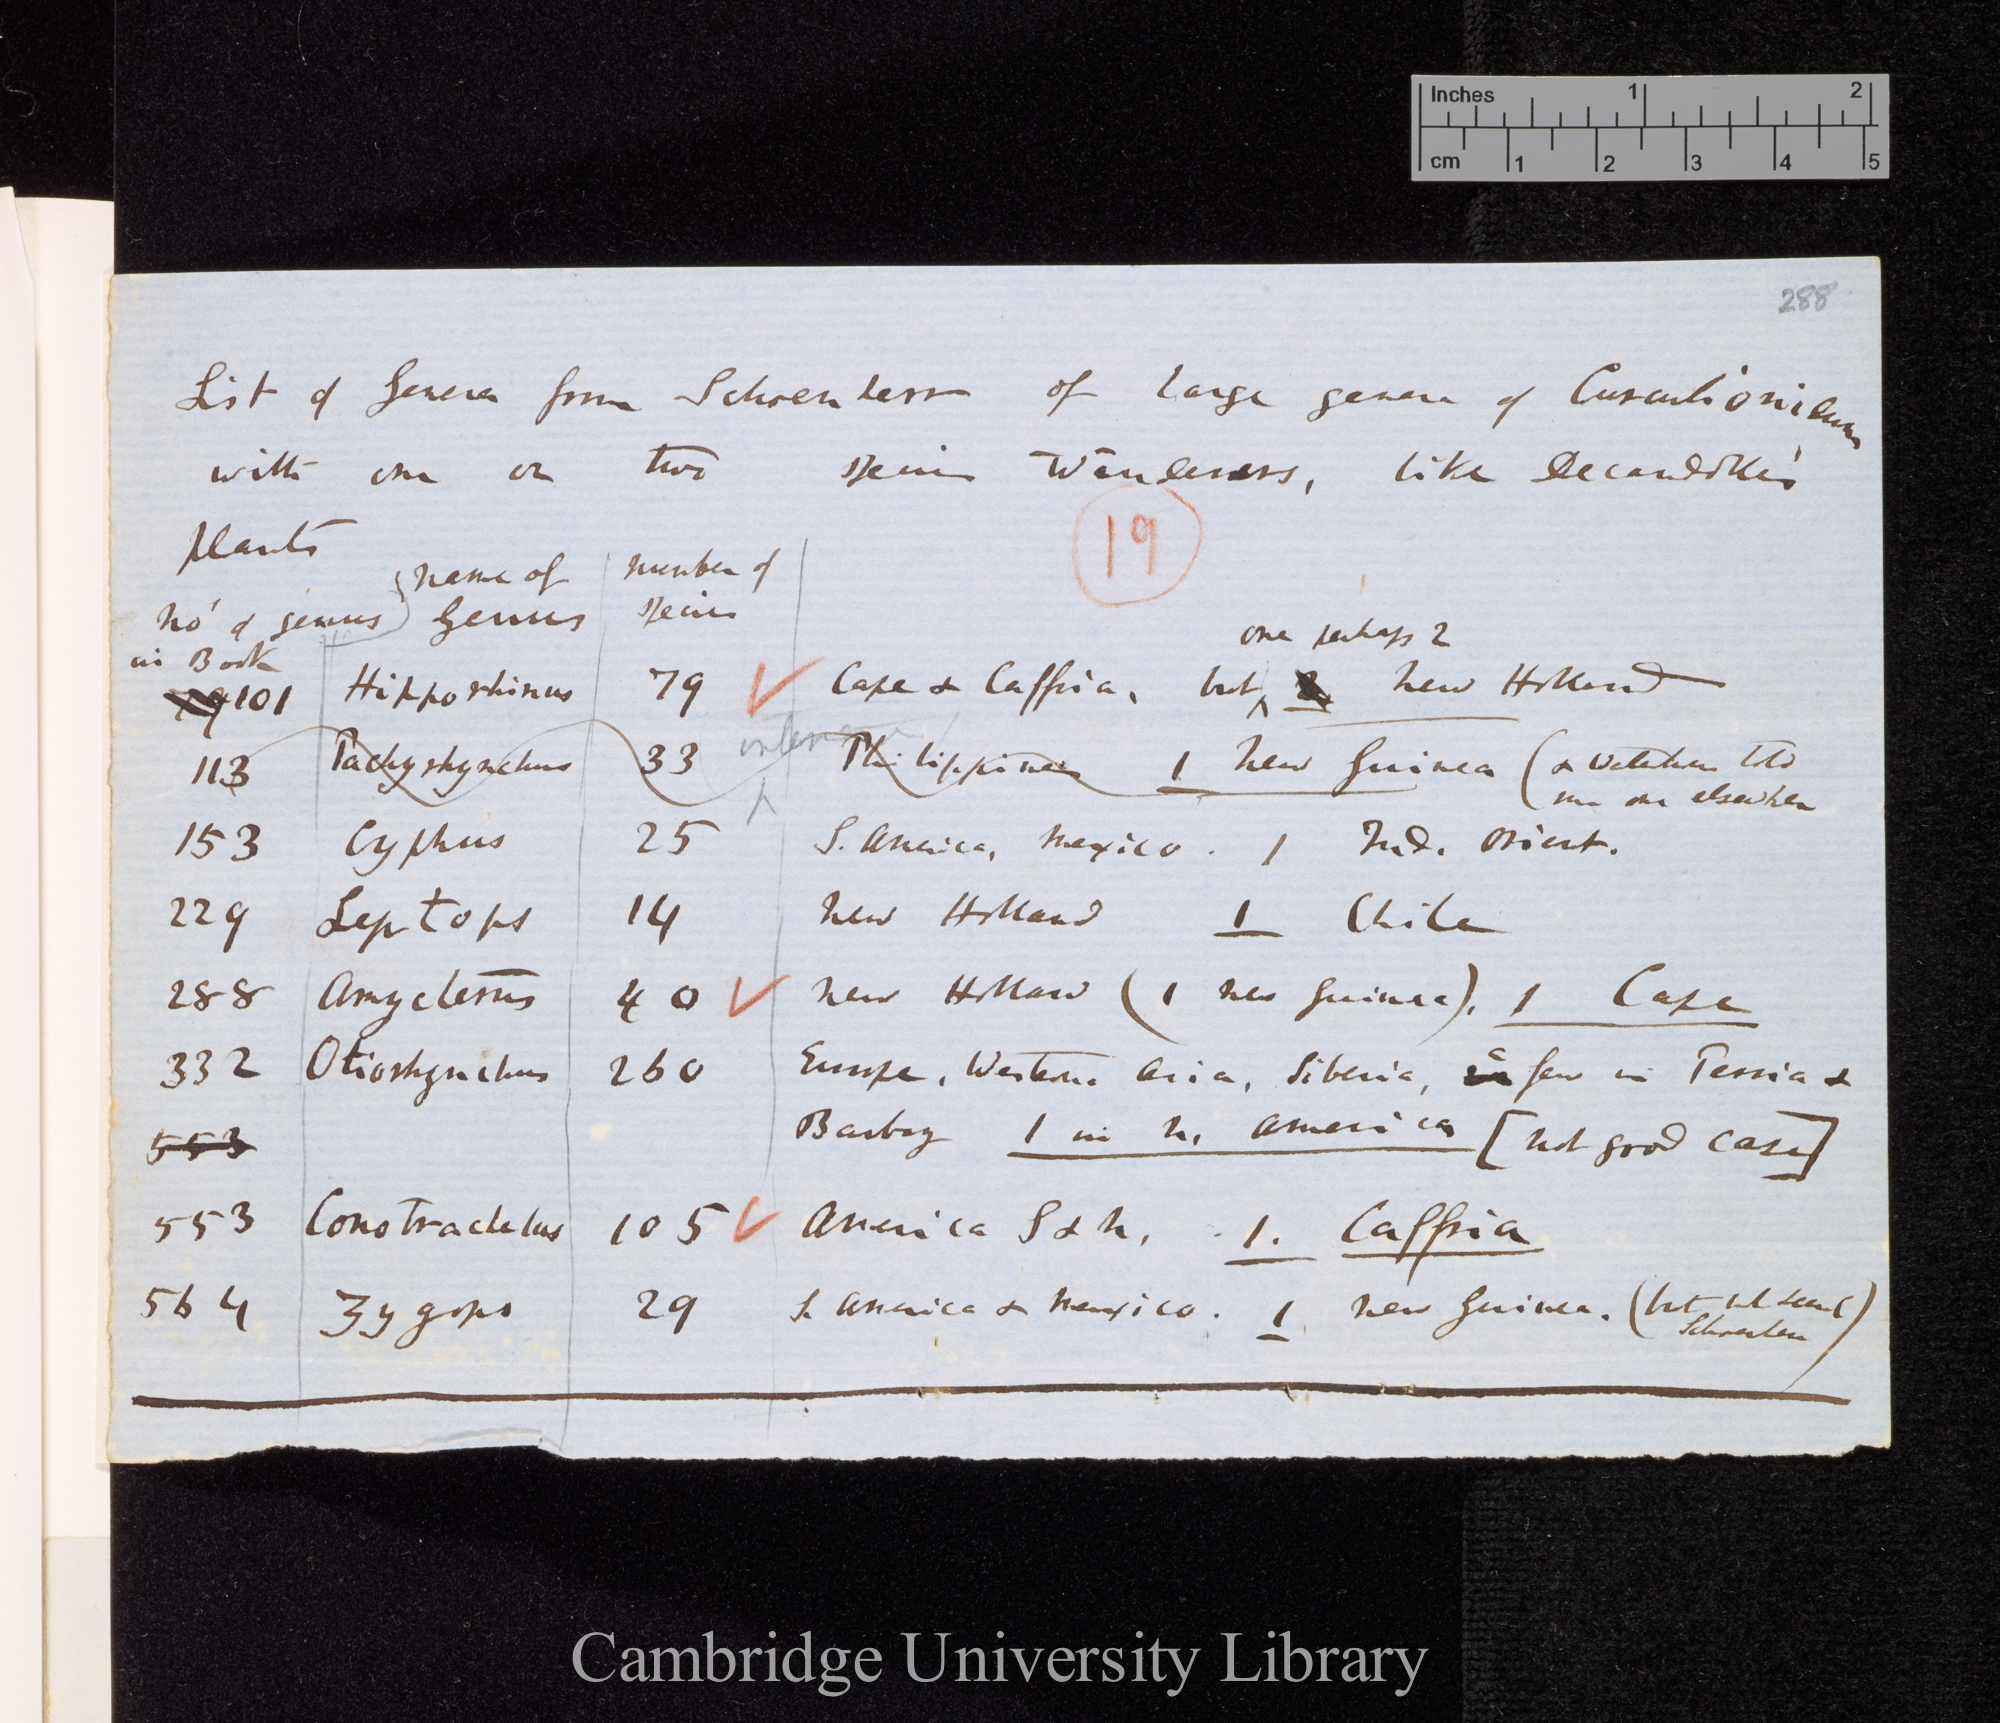 Inches 1 2
cm 1 2 3 4 5
288
List of Genera from Schoenherr of large genera of Curculionidæ
with one or two species Wanderers, like Decandolle's
plants
19
No' of genus in Book
name of Genus
number of species
one perhaps 2
101 Hipporhinus 79 Cape & Caffria, but New Holland
113 Tachyrhynchus 33 Philippines 1 New Guinea (& Waterhouse told me one elsewhere
153 Cyphus 25 S. America, Mexico. 1 Ind. Orient.
229 Leptops 14 New Holland 1 Chile
288 Amycterus 40 New Holland (1 New Guinea), 1 Cape
332 Otiorhynchus 260 Europe, Western Asia, Siberia, a few in Persia &
553 Barbary 1 in N. America [not good case]
553 Conotrachelus 105 America S & N. 1. Caffria
564 Zygops 29 S. America & Mexico. 1 New Guinea. (but not seen by Schoenherr)
Cambridge University Library